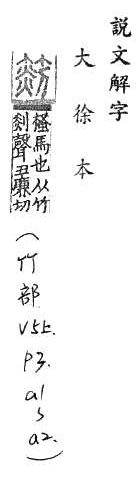 說文解字
大徐本
搔馬也从竹
剡聲丑廉切
(竹部 V5上. P3. a1 ~ a2.)